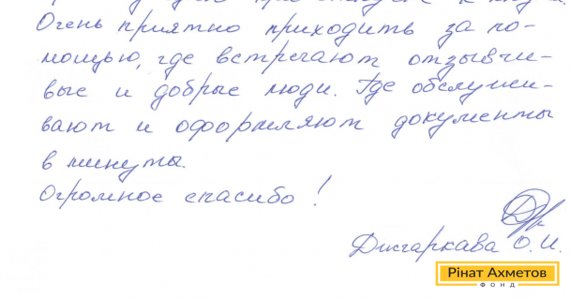 Очень приятно приходить за по-
мощью, где встречают отзывчи-
вые и добрые люди. Где обслужи-
вают и оформляют документы
в минуты.
Огромное спасибо!
О. И.
Рінат Ахметов
ФОНД